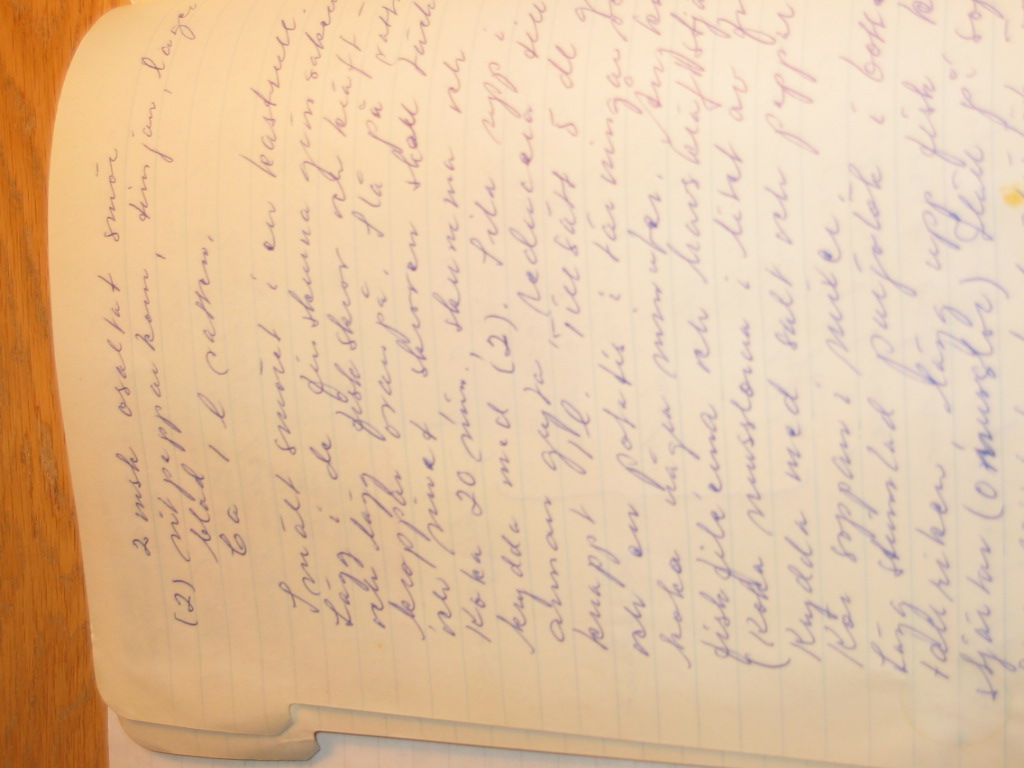 2 msk osaltat smör
(2) vitpepparkorn, timjan, lager
blad
Ca 1 l vatten.
Smält smöret i en kastrull.
Lägg i de finskurna grönsakerna
och lägg fiskskror och kräft-
kroppar ovanpå. Slå på vatt
vattnet skroven skall
Koka 20 min. skumma och
krydda med (2). Sila upp i
annan gryta. Reducera till
knappt 1/2. Tillsätt 5 dl
och en potatis i tärningar
koka några minuter.
fiskfiléerna och havskräftstja
(Koka musslorna i litet av
Krydda med salt och peppar
Kör soppan i mixer.
Lägg strimlad purjolök i botten
tallriken. Lägg upp fisk
stjärtar (o musslor) Slå på sop